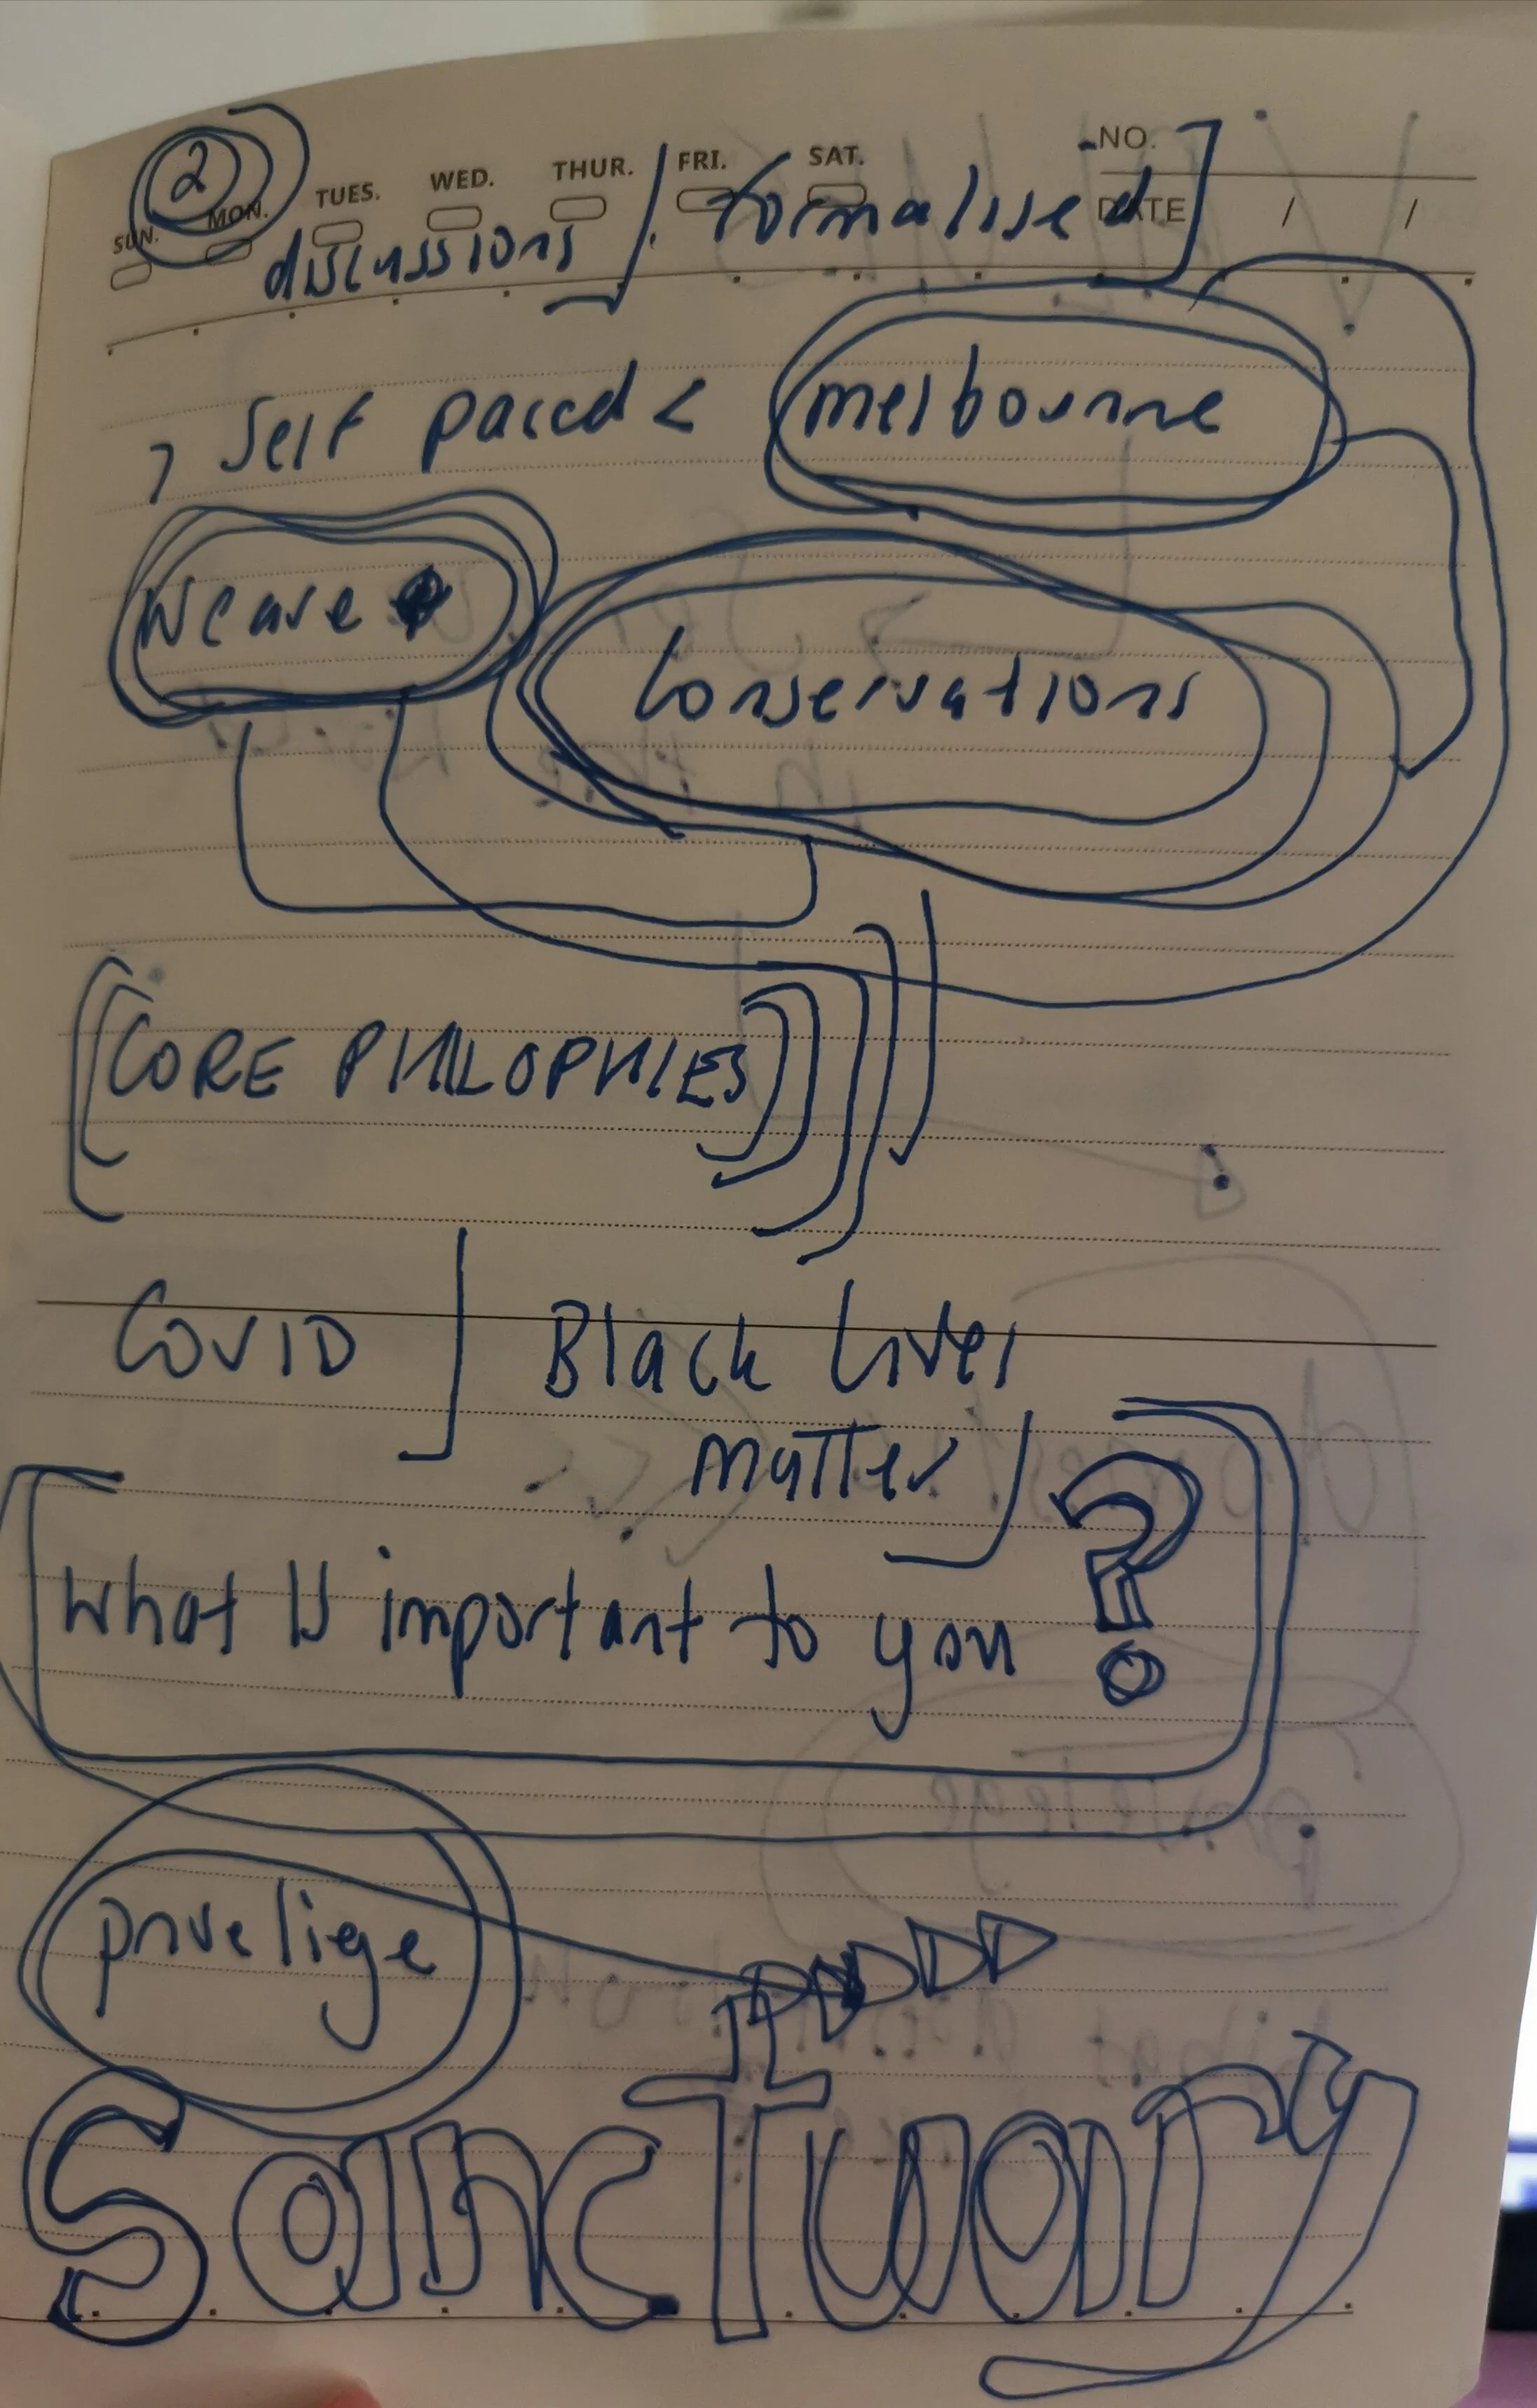 2
SUN. MON. TUES. WED. THUR. FRI. SAT.
NO.
DATE / /
discussions / formalised
> Self paced < melbourne
Weave
Conservations
CORE PHILOPHIES
COVID Black Lives
matter
What is important to you ?
priveliege
Sanctuary